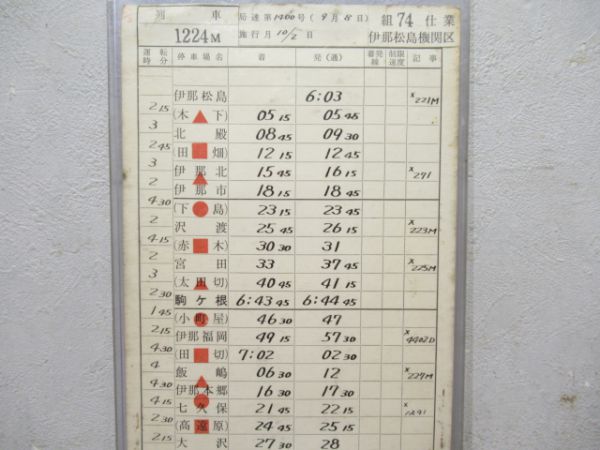 列車 局達第1400号(9月8日) 組74仕業
1224M 施行月10/2日 伊那松島機関区
運転時分 停車場名 着 発(通) 着発線 制限速度 記事
伊那松島 6:03 ×221M
2 15
(木下) 05 15 05 45
3
北殿 08 45 09 30
2 45
(田畑) 12 15 12 45
3
伊那北 15 45 16 15 ×291
2
伊那市 18 15 18 45
4 30
(下島) 23 15 23 45
2
沢渡 25 45 26 15 ×223M
4 15
(赤木) 30 30 31
2
宮田 33 37 45 ×225M
3
(太田切) 40 45 41 15
2 30
駒ケ根 6:43 45 6:44 45
1 45
(小町屋) 46 30 47
2 15
伊那福岡 49 15 57 30 ×4402D
4 30
(田切) 7:02 02 30
4
飯嶋 06 30 12 ×227M
4 30
伊那本郷 16 30 17 30
4 15
七久保 21 45 22 15 ×1291
2 30
(高遠原) 24 45 25 15
2 15
大沢 27 30 28